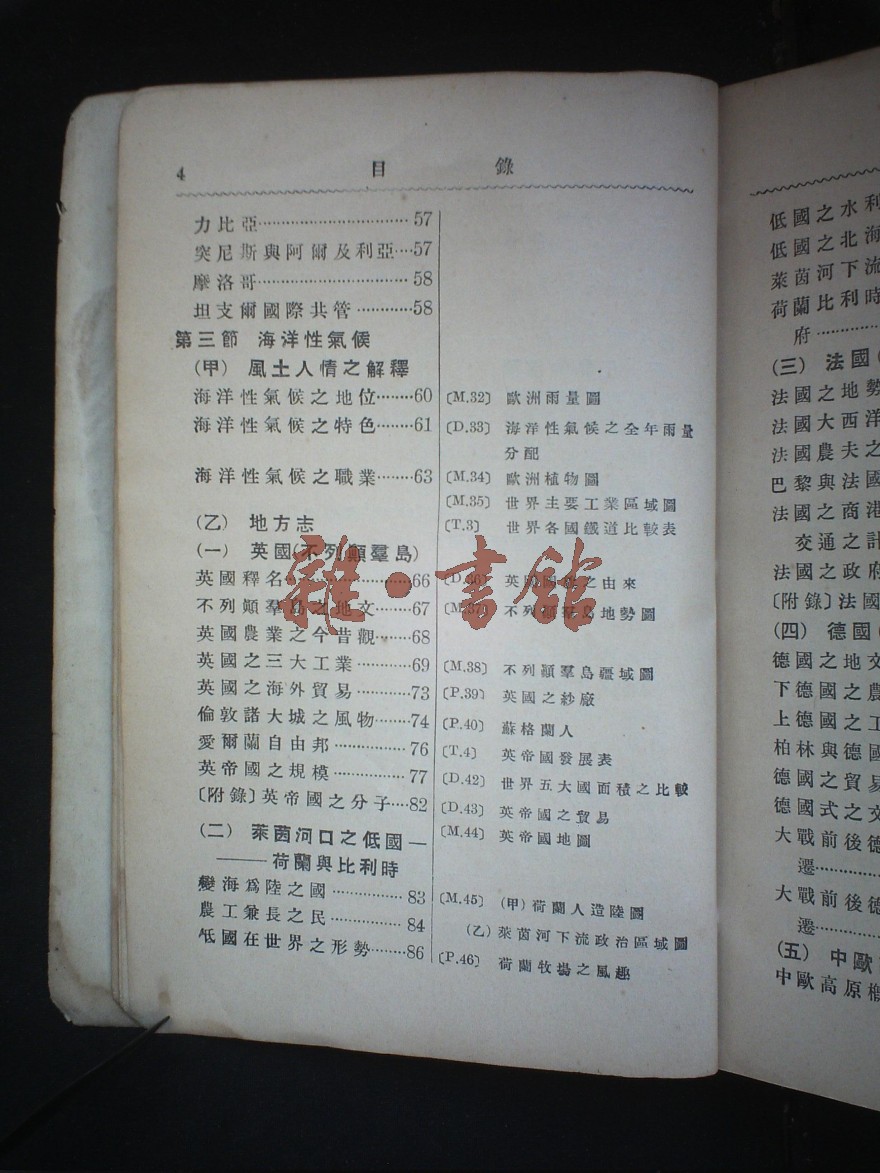 4 目 錄
力比亞 57
突尼斯與阿爾及利亞 57
摩洛哥 58
坦支爾國際共管 58
第三節 海洋性氣候
(甲) 風土人情之解釋
海洋性氣候之地位 60
海洋性氣候之特色 61
海洋性氣候之職業 63
(乙) 地方志
(一) 英國(不列顚羣島)
英國釋名 66
不列顚羣島之地文 67
英國農業之今昔觀 68
英國之三大工業 69
英國之海外貿易 73
倫敦諸大城之風物 74
愛爾蘭自由邦 76
英帝國之規模 77
〔附錄〕英帝國之分子 82
(二) 萊茵河口之低國—
——荷蘭與比利時
變海爲陸之國 83
農工兼長之民 84
低國在世界之形勢 86
〔M.32〕 歐洲雨量圖
〔D.33〕 海洋性氣候之全年雨量
分配
〔M.34〕 歐洲植物圖
〔M.35〕 世界主要工業區域圖
〔T.3〕 世界各國鐵道比較表
〔D.36〕 英國國旗之由來
〔M.37〕 不列顚羣島地勢圖
〔M.38〕 不列顚羣島疆域圖
〔P.39〕 英國之紗廠
〔P.40〕 蘇格蘭人
〔T.4〕 英帝國發展表
〔D.42〕 世界五大國面積之比較
〔D.43〕 英帝國之貿易
〔M.44〕 英帝國地圖
〔M.45〕 (甲)荷蘭人造陸圖
(乙)萊茵河下流政治區域圖
〔P.46〕 荷蘭牧場之風趣
雜·書館
低國之水利
低國之北海
萊茵河下流
荷蘭比利時
府
(三) 法國(
法國之地勢
法國大西洋
法國農夫之
巴黎與法國
法國之商港
交通之計
法國之政府
〔附錄〕法國
(四) 德國(
德國之地文
下德國之農
上德國之工
柏林與德國
德國之貿易
德國式之文
大戰前後德
遷
大戰前後德
遷
(五) 中歐
中歐高原